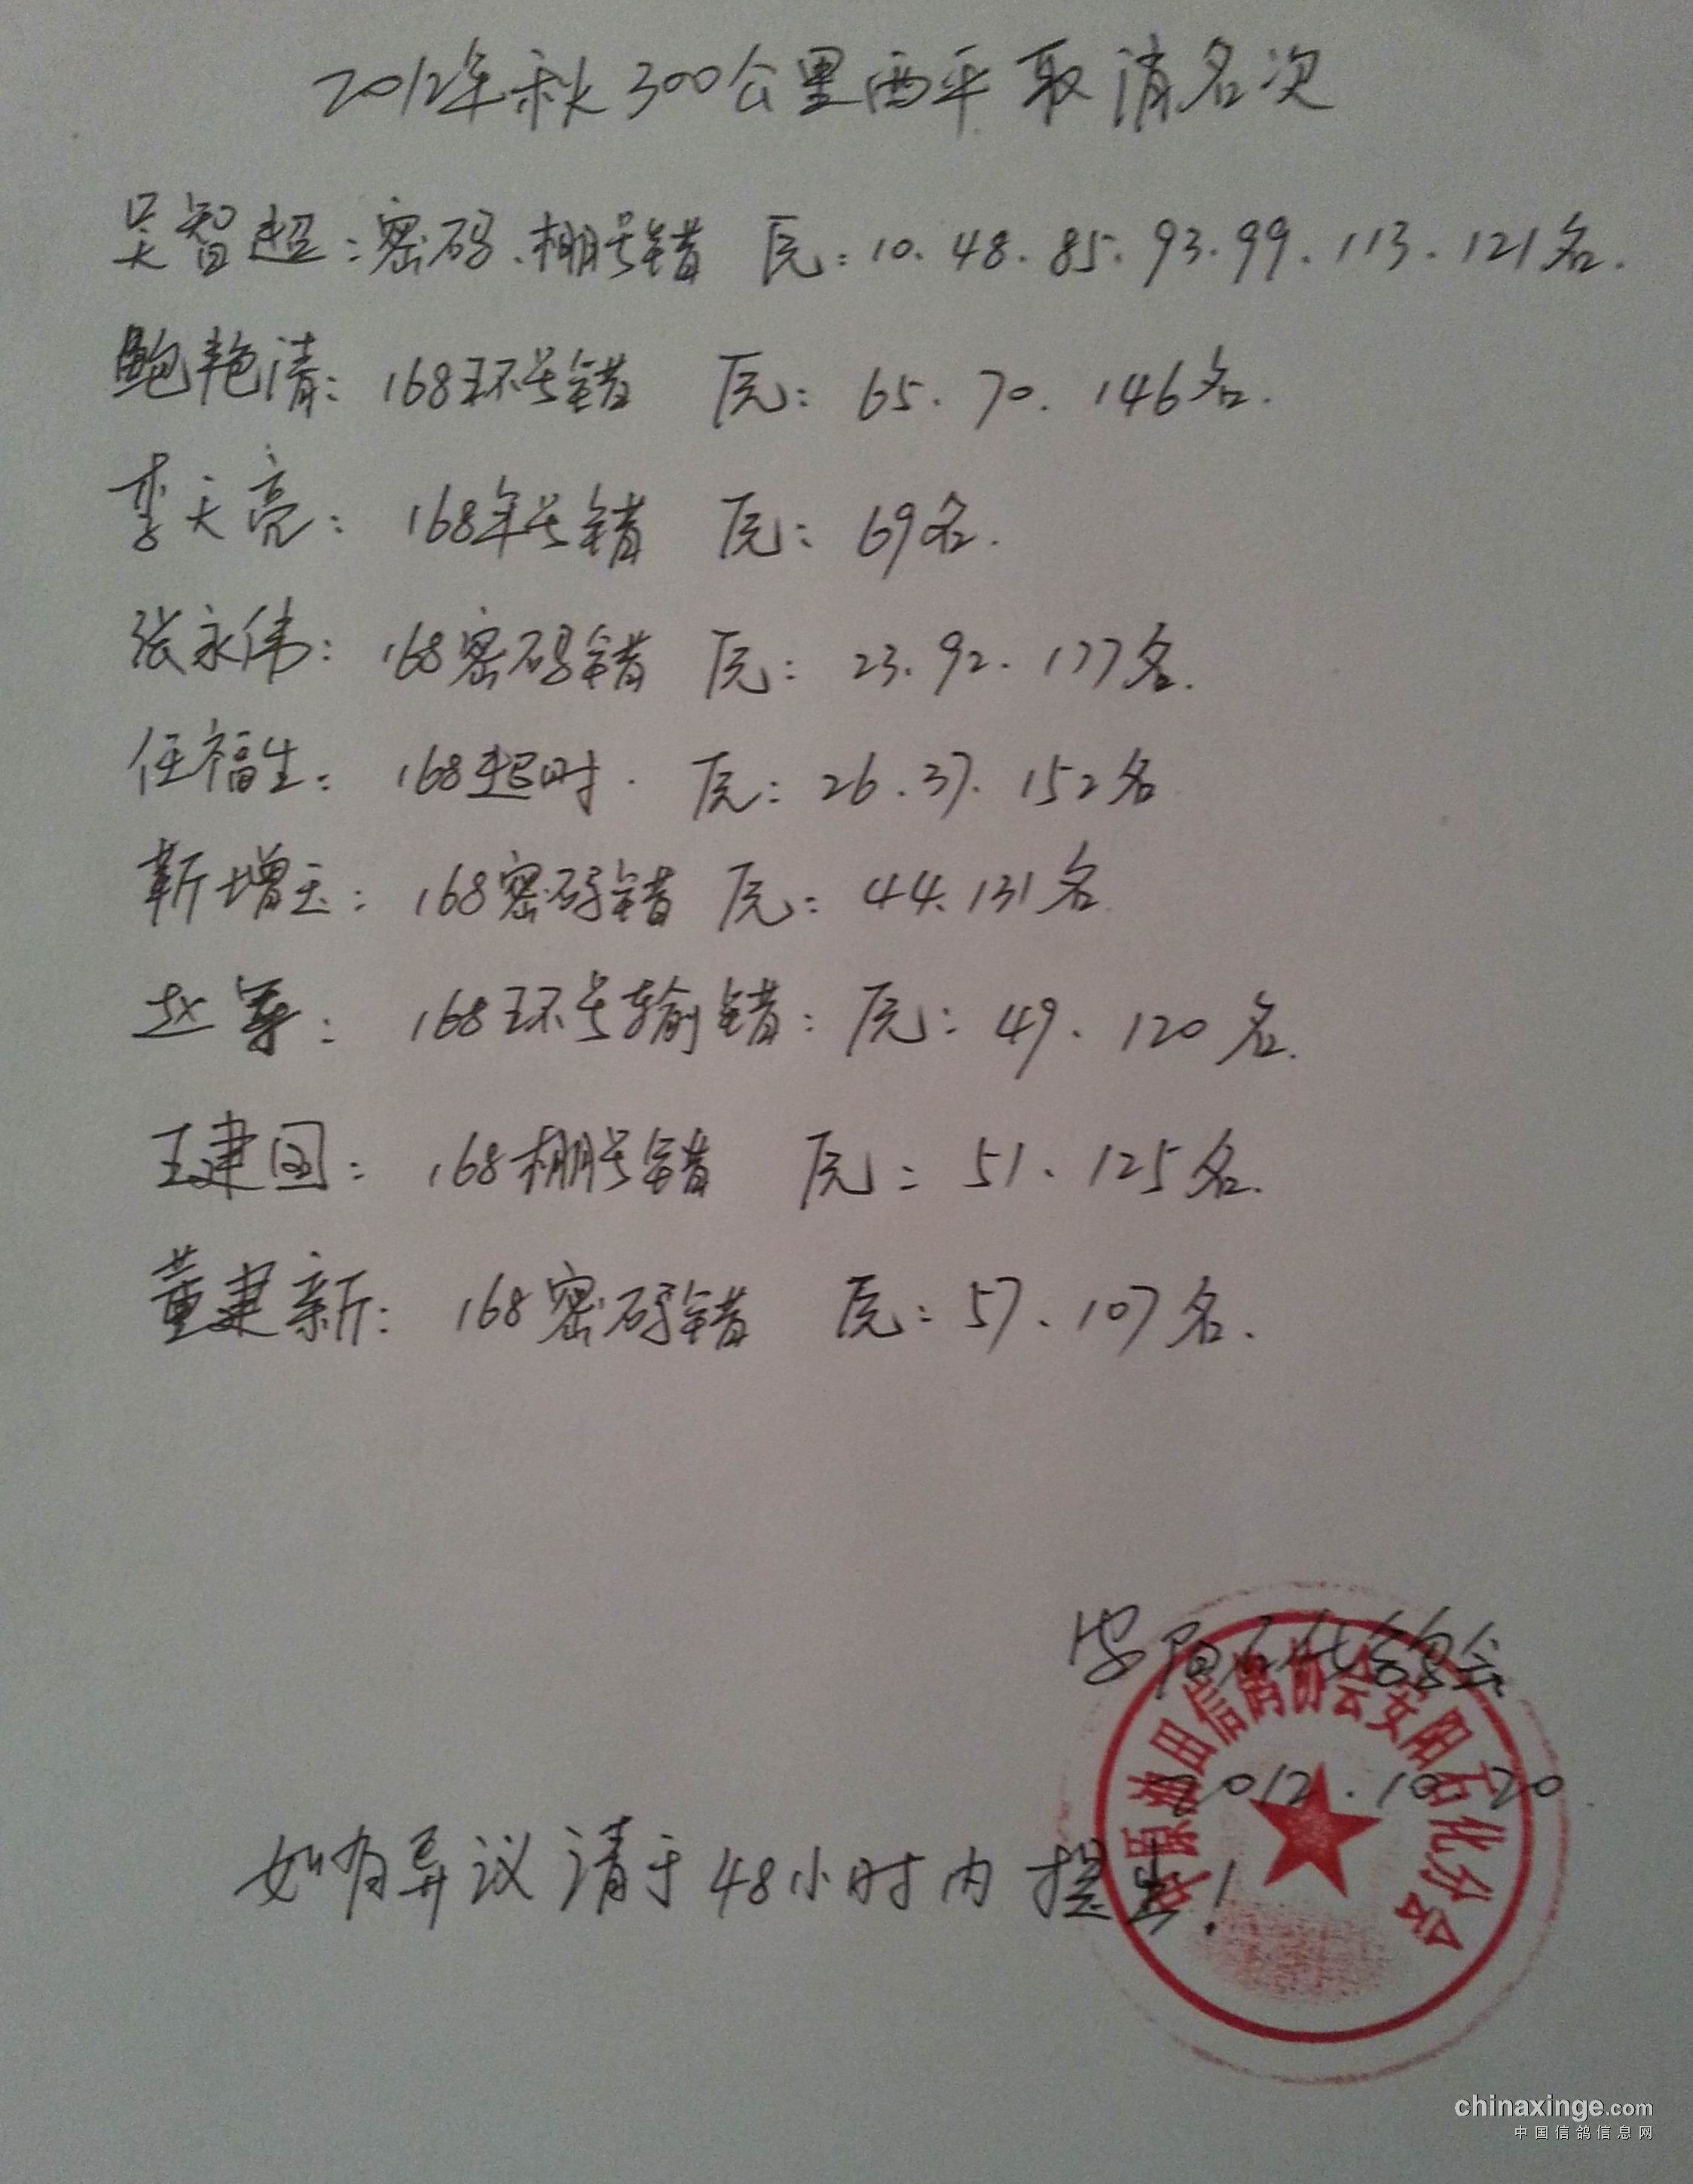 2012年秋300公里西平取消名次
吴智超:密码、棚号错 原:10.48.85.93.99.113.121名.
鲍艳清:168环号错 原:65.70.146名.
李天亮:168年号错 原:69名.
张永伟:168密码错 原:23.92.177名.
任福生:168超时. 原:26.37.152名
靳增玉:168密码错 原:44.131名
赵军:168环号输错:原:49、120名.
王建国:168棚号错 原:51、125名.
董建新:168密码错 原:57、107名.
安阳石化鸽会
中原油田信鸽协会安阳石化分会
2012.10.20
如有异议请于48小时内提出!
chinaxinge.com
中国信鸽信息网